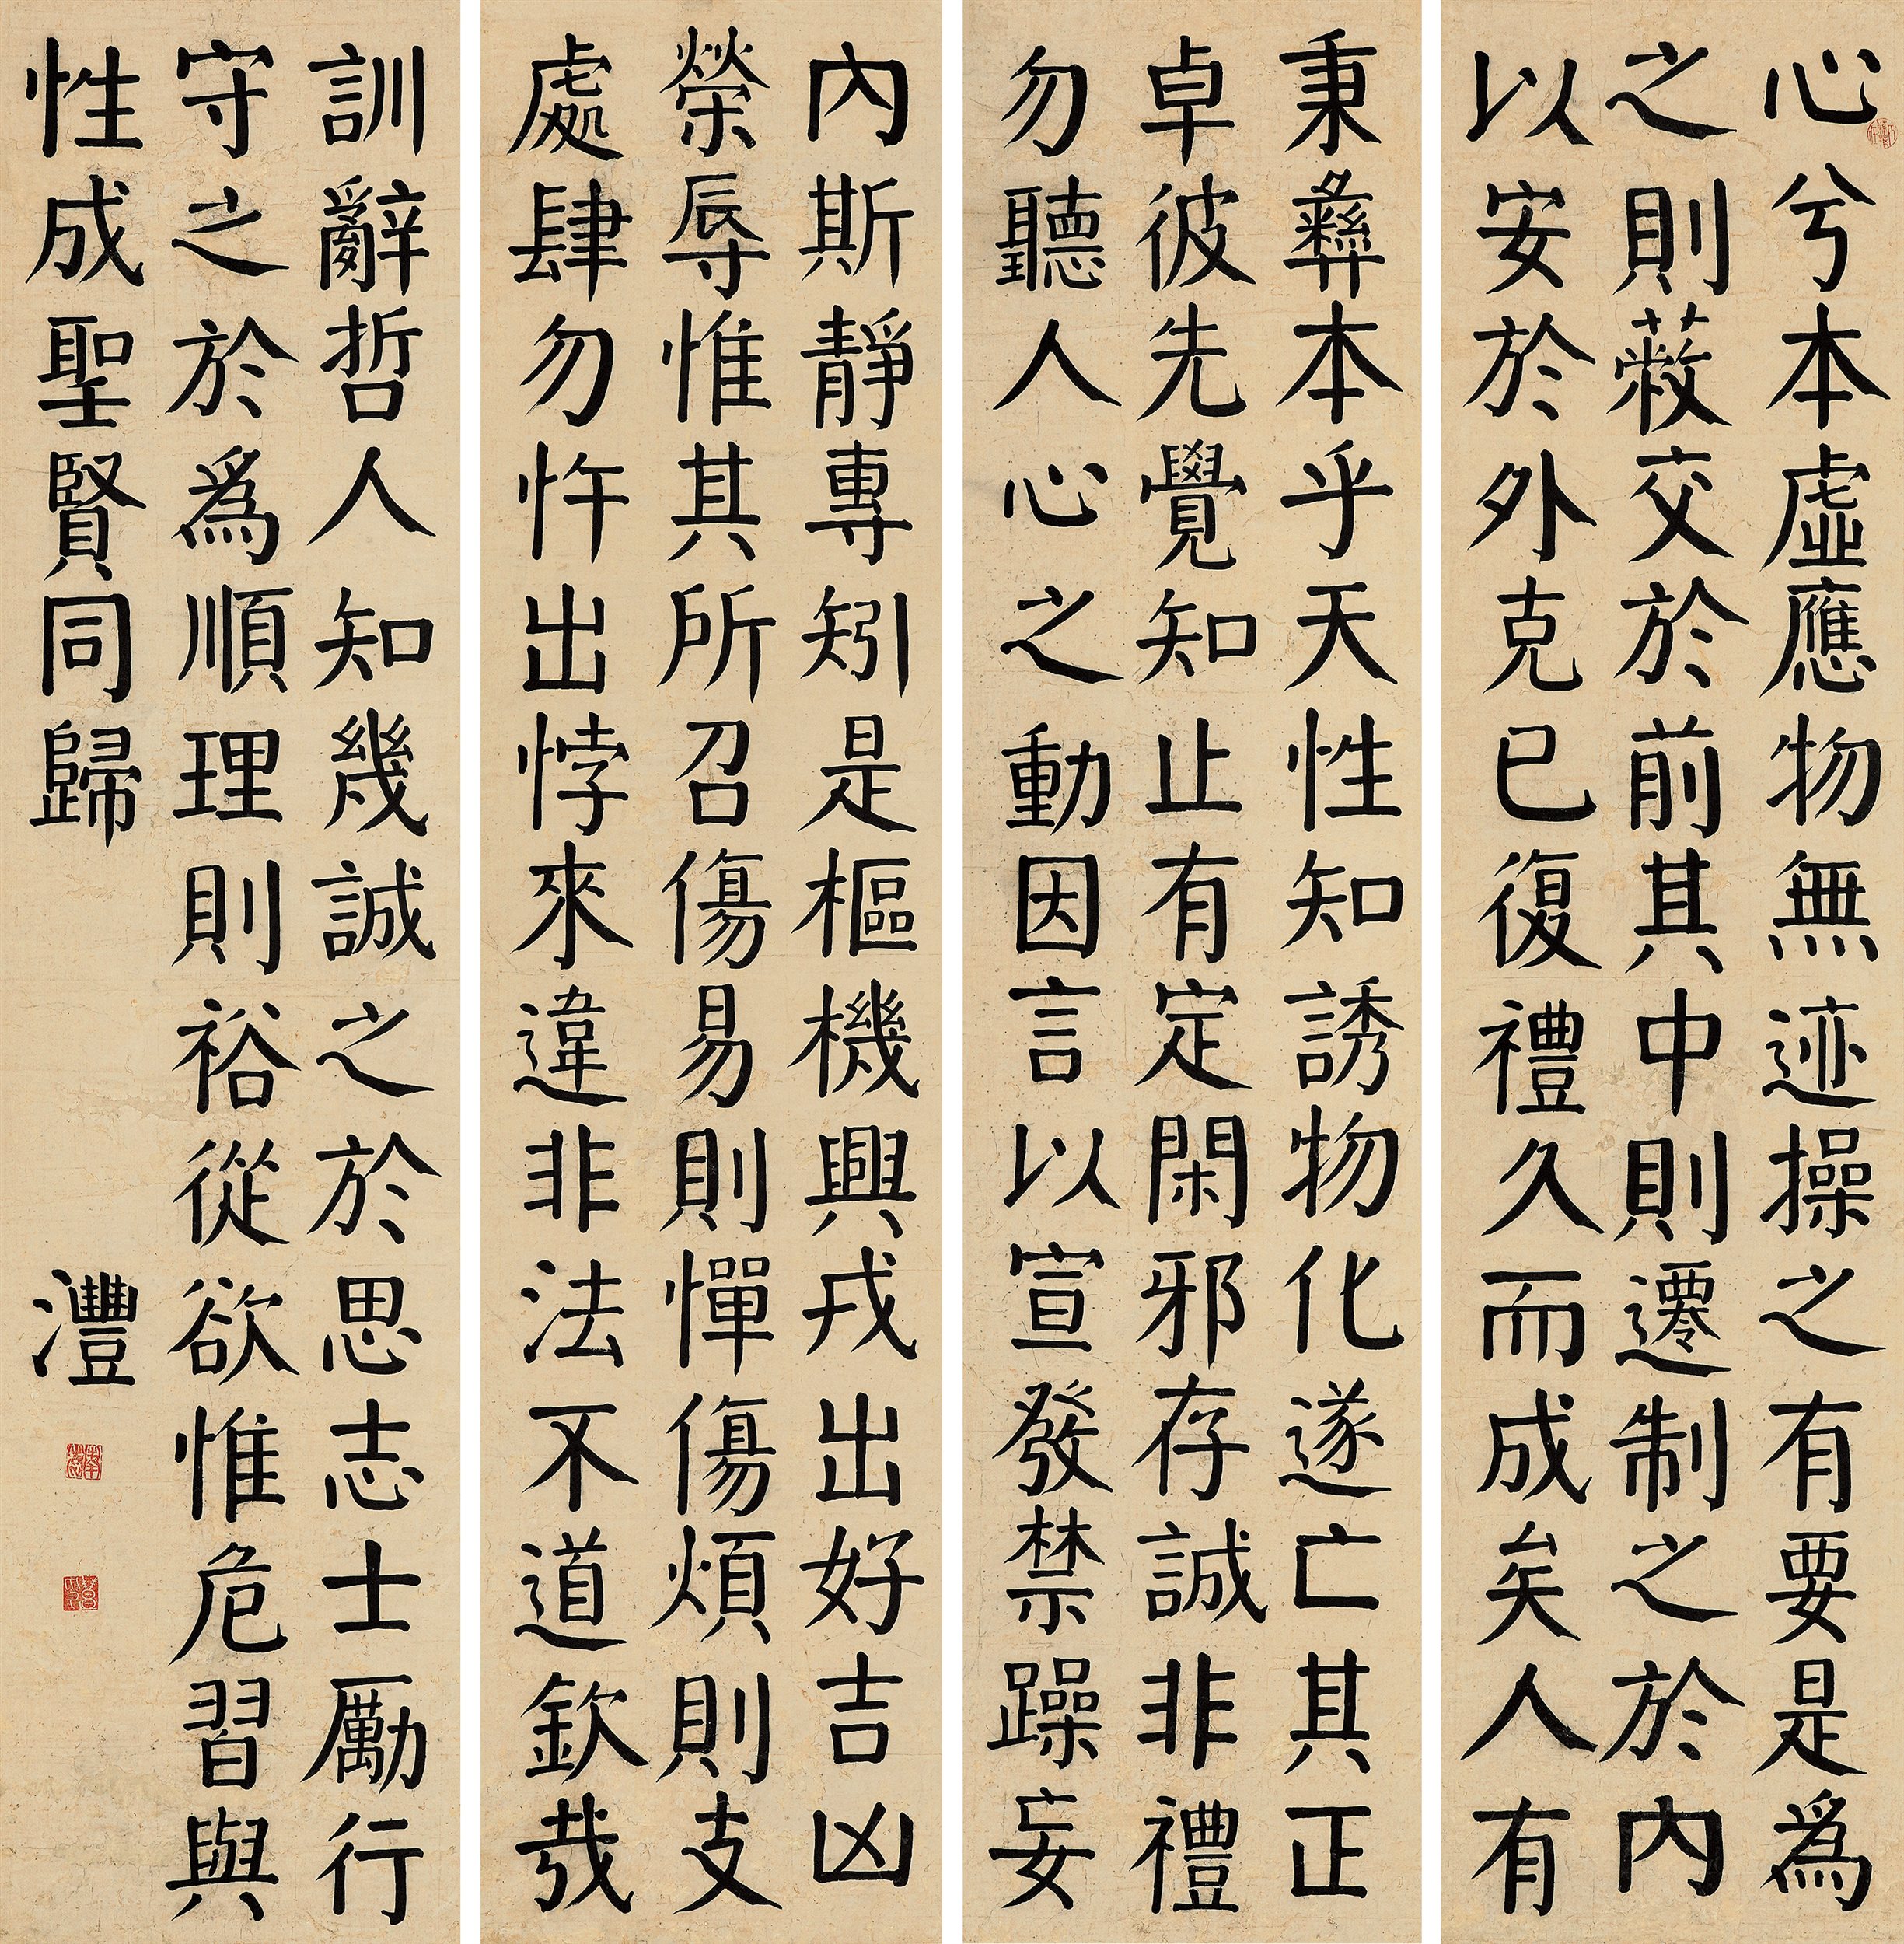 心兮本虛應物無迹操之有要是爲
之則蔽交於前其中則遷制之於內
以安於外克己復禮久而成矣人有
秉彝本乎天性知誘物化遂亡其正
卓彼先覺知止有定閑邪存誠非禮
勿聽人心之動因言以宣發禁躁妄
內斯靜專矧是樞機興戎出好吉凶
榮辱惟其所召傷易則憚傷煩則支
處肆勿忤出悖來違非法不道欽哉
訓辭哲人知幾誠之於思志士勵行
守之於爲順理則裕從欲惟危習與
性成聖賢同歸
灃